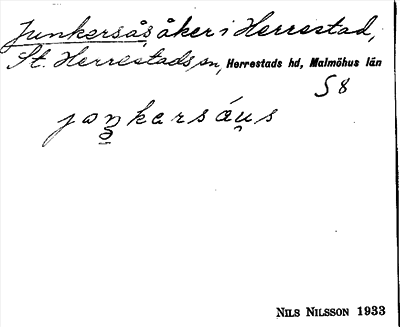 Junkersås, åker i Herrestad,
St. Herrestads sn, Herrestads hd, Malmöhus län
S 8
joŋkarsáu̯s
NILS NILSSON 1933